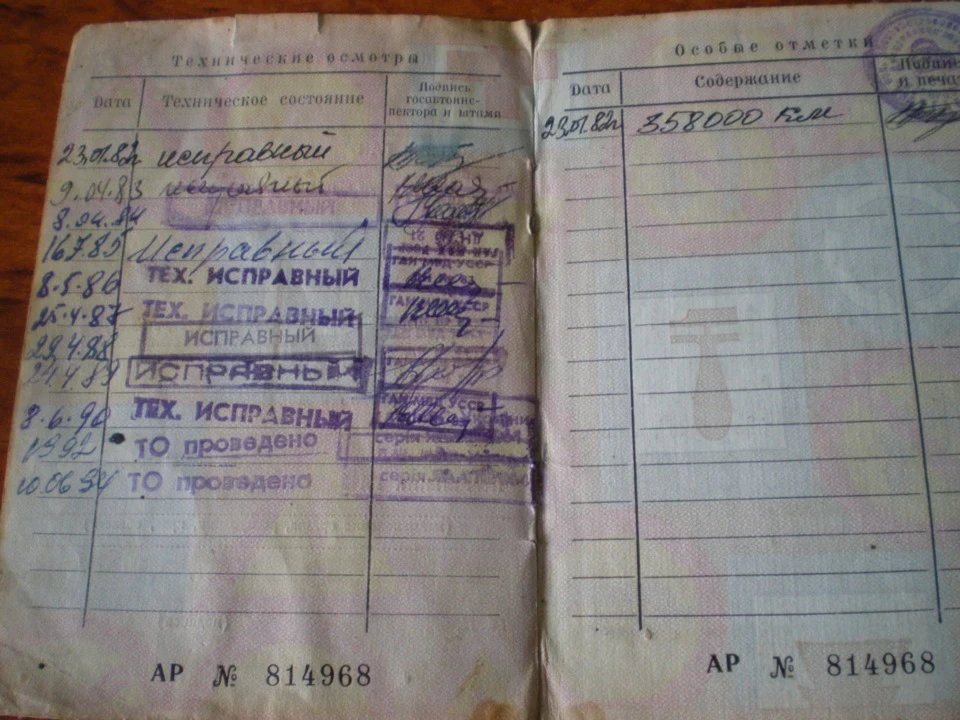 Технические осмотры
Дата Техническое состояние Подпись госавтоинс-
пектора и штамп
23.01.82г исправный
9.04.83 исправный
ИСПРАВНЫЙ
8.04.84
16.7.85 Исправный
ГАИ МВД УССР
8.5.86 ТЕХ. ИСПРАВНЫЙ
25.4.87 ТЕХ. ИСПРАВНЫЙ
ГАИ МВД УССР
29.4.88 ИСПРАВНЫЙ
24.4.89 ИСПРАВНЫЙ
8.6.90 ТЕХ. ИСПРАВНЫЙ
ГАИ МВД УССР
1992 ТО проведено
серія
10.06.94 ТО проведено
серія
АР № 814968
Особые отметки
Дата Содержание Подпись
и печать
23.01.82г 358000 км
АР № 814968